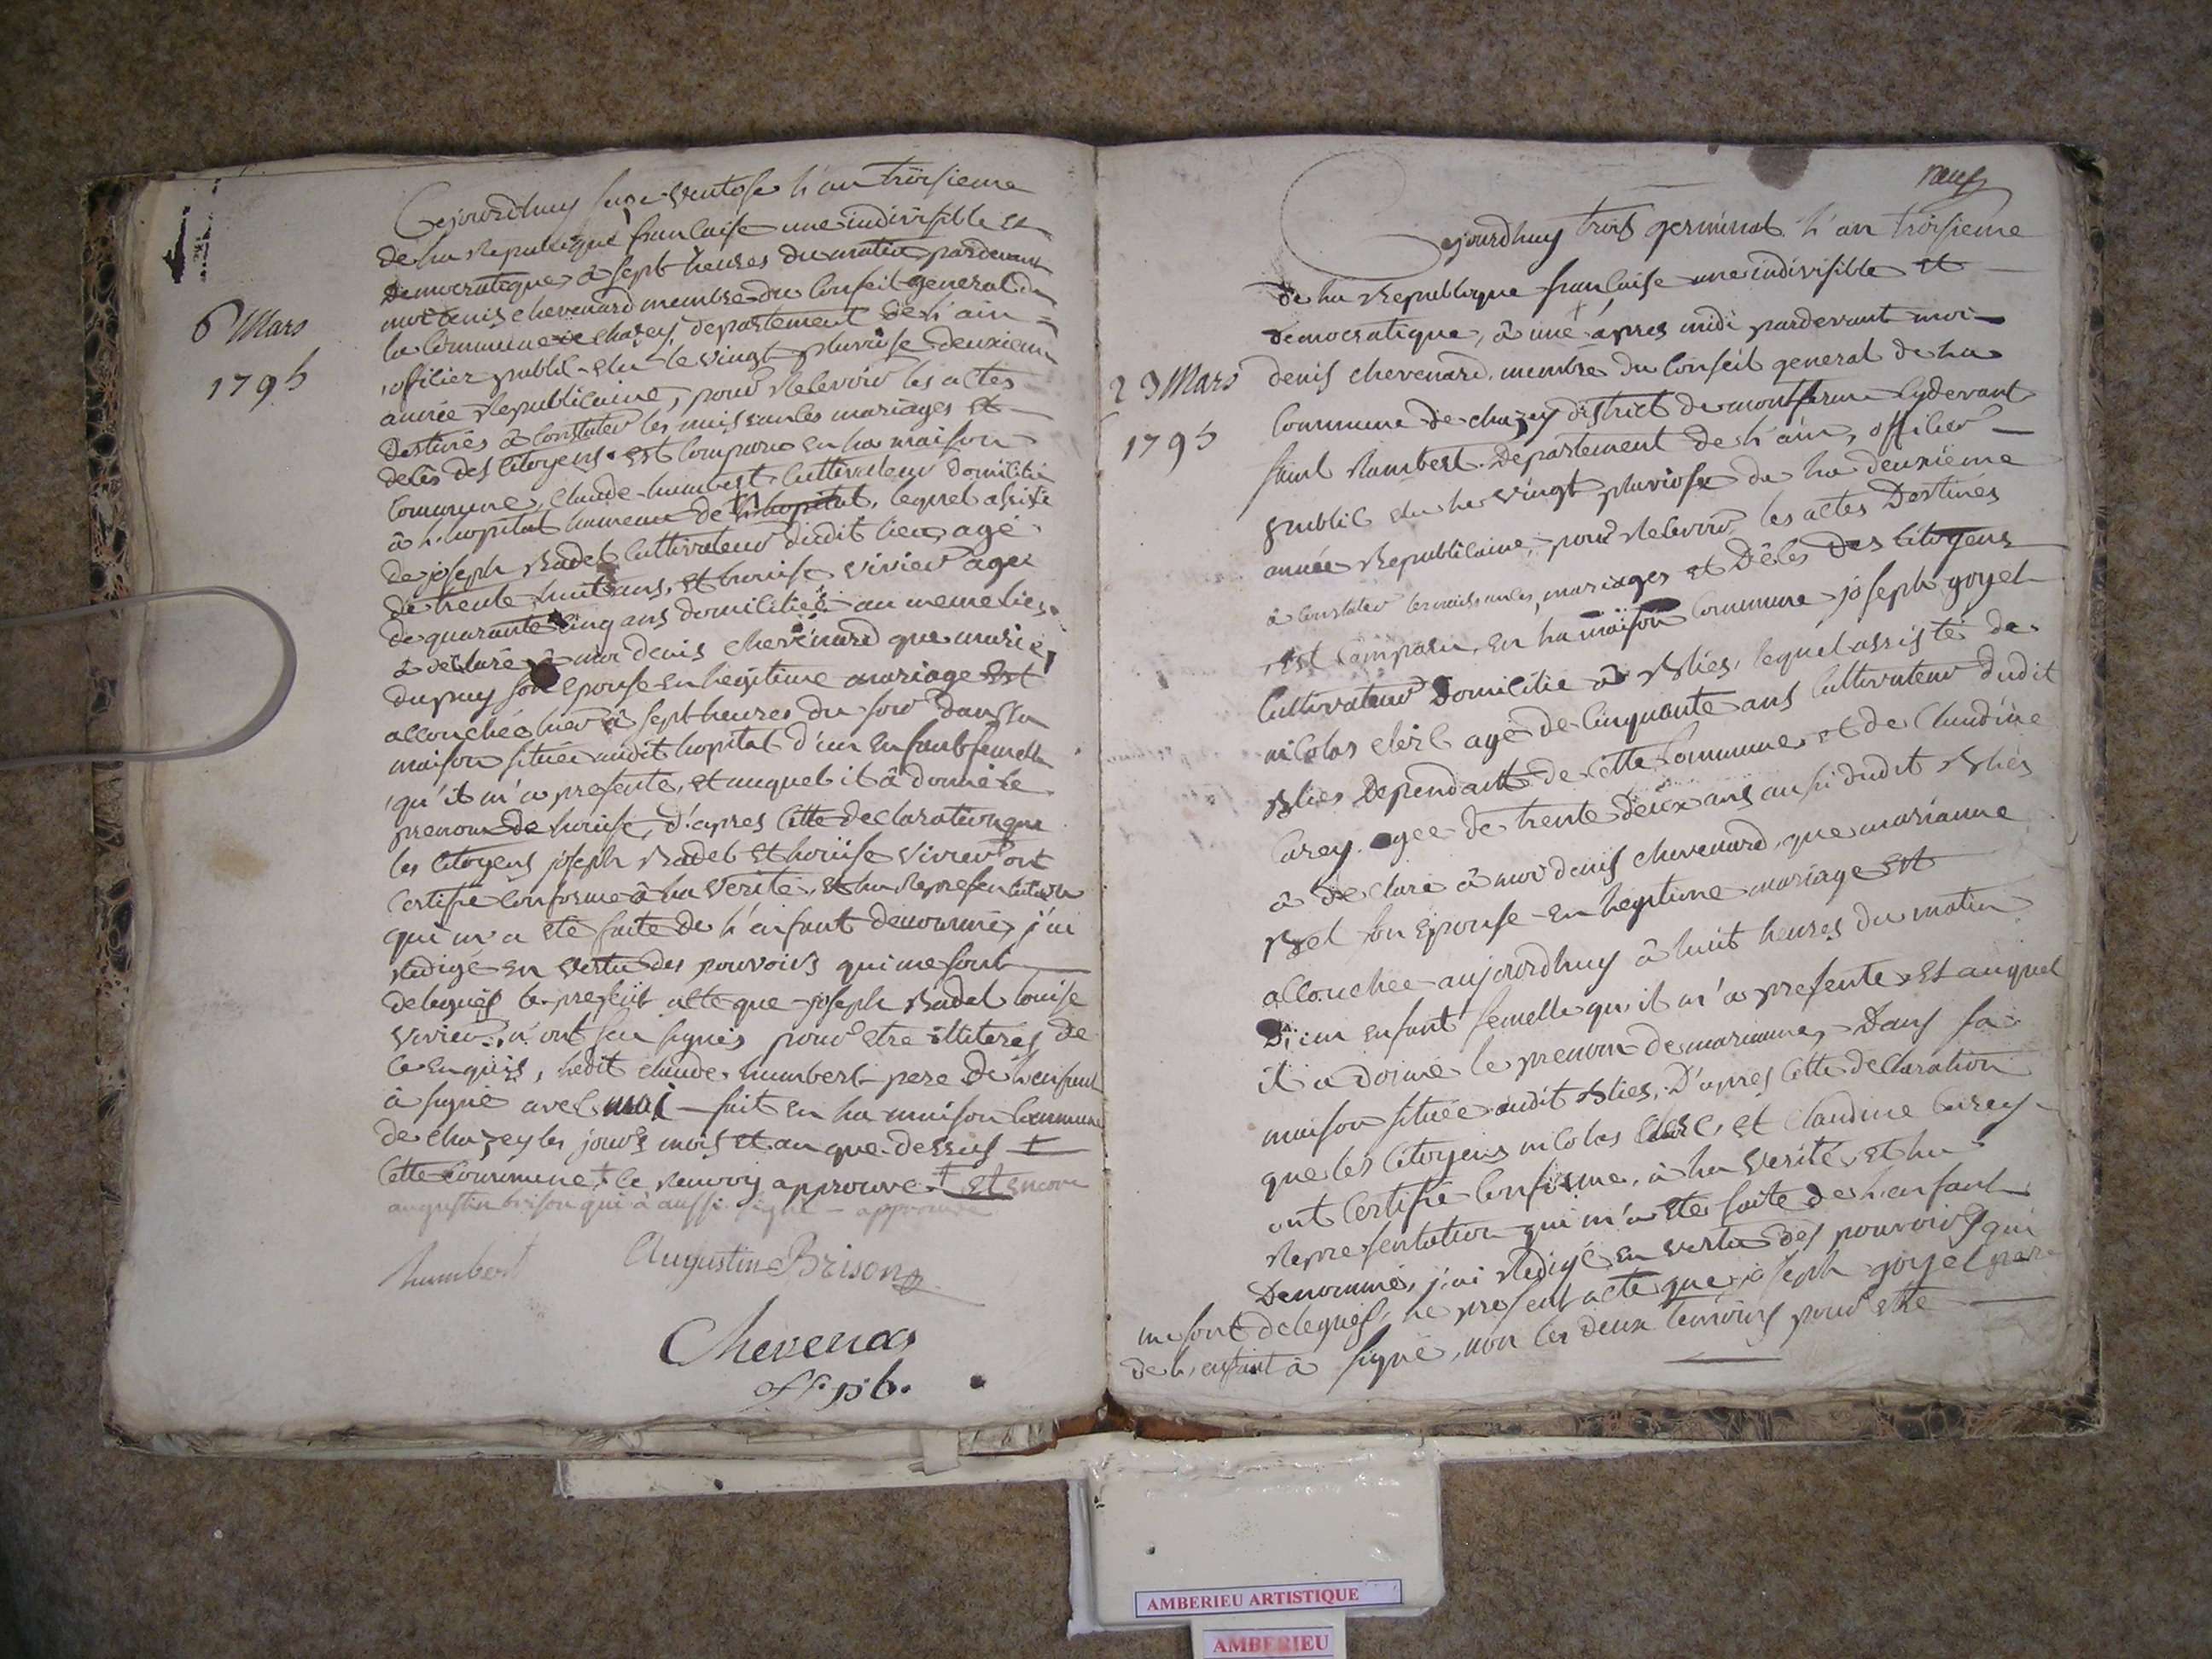 6 Mars
1795
Cejourdhuy seize ventose l'an troisieme
de la Republique francaise une indivisible et
Democratique, à sept heures du matin pardevant
moi denis chevenard membre du Conseil general de
la Commune de chazey, departement de l'ain
officier public elu le vingt pluviose deuxieme
année Republicaine, pour Recevoir les actes
Destinés à Constater les naissances mariages et
decès des Citoyens. est Comparu en la maison
Commune, Claude humbert Cultivateur domicilié
à l'hopital hameau de l'hopital, lequel assisté
de joseph Radet Cultivateur dudit lieu, agé
de trente huit ans, et louise vivier agée
de quarante Cinq ans domiciliés au meme lieu.
à declaré à moi denis chevenard que marie
dupuy son Epouse en legitime mariage Est
accouchée hier à sept heures du soir dans sa
maison située audit hopital d'un Enfant femelle
qu'il m'a presenté, et auquel il à donné le
prenom de louise, d'apres Cette declaration que
les Citoyens joseph Radet et louise vivier ont
Certifié Conforme à la verité, et la Representation
qui m'a eté faite de l'enfant denommé, j'ai
Redigé en vertu des pouvoirs qui me sont
delegués le present acte que joseph Radet louise
vivier, n'ont seu signés pour etre illiterés de
ce Enquis, ledit claude humbert pere de l'enfant
à signé avec moi fait en la maison Commune
de chazey les jours mois et an que dessus +
Cette Commune + le Renvoy approuvé + et encore
augustin brison qui à aussi signé - approuvé
humbert Augustin Brison
Chevenard
off. pb.
neuf
23 Mars
1795
Cejourdhuy trois germinal l'an troisieme
de la Republique francaise une indivisible et
democratique, à une apres midi pardevant moi
denis chevenard. membre du Conseil general de la
Commune de chazey district de montferme Cydevant
saint Rambert. Departement de l'ain, officier
public elu le vingt pluviose de la deuxième
année Republicaine, pour Recevoir les actes Destinés
à Constater les naissances, mariages et Décès des Citoyens
est Comparu, en la maison Commune joseph goyet
Cultivateur Domicilié à Rlies, lequel assisté de
nicolas clerc agé de Cinquante ans Cultivateur dudit
Blies Dependant de Cette Commune et de Claudine
Curey agée de trente Deux ans aussi dudit Blies
à declaré à moi denis chevenard, que marianne
son Epouse en legitime mariage est
accouchée aujourdhuy à huit heures du matin
D'un enfant femelle qu'il m'a presenté et auquel
il a donné le prenom de marianne, Dans sa
maison située audit Blies, D'apres Cette declaration
que les Citoyens nicolas Clerc, et Claudine Curey
ont Certifié Conforme, à la verité, et la
Representation qui m'a eté faite de l'enfant
Denommé, j'ai Redigé en vertu des pouvoirs qui
me sont delegués, le present acte que joseph goyet pere
de l'enfant à signé, non les deux temoins pour etre
AMBERIEU ARTISTIQUE
AMBERIEU